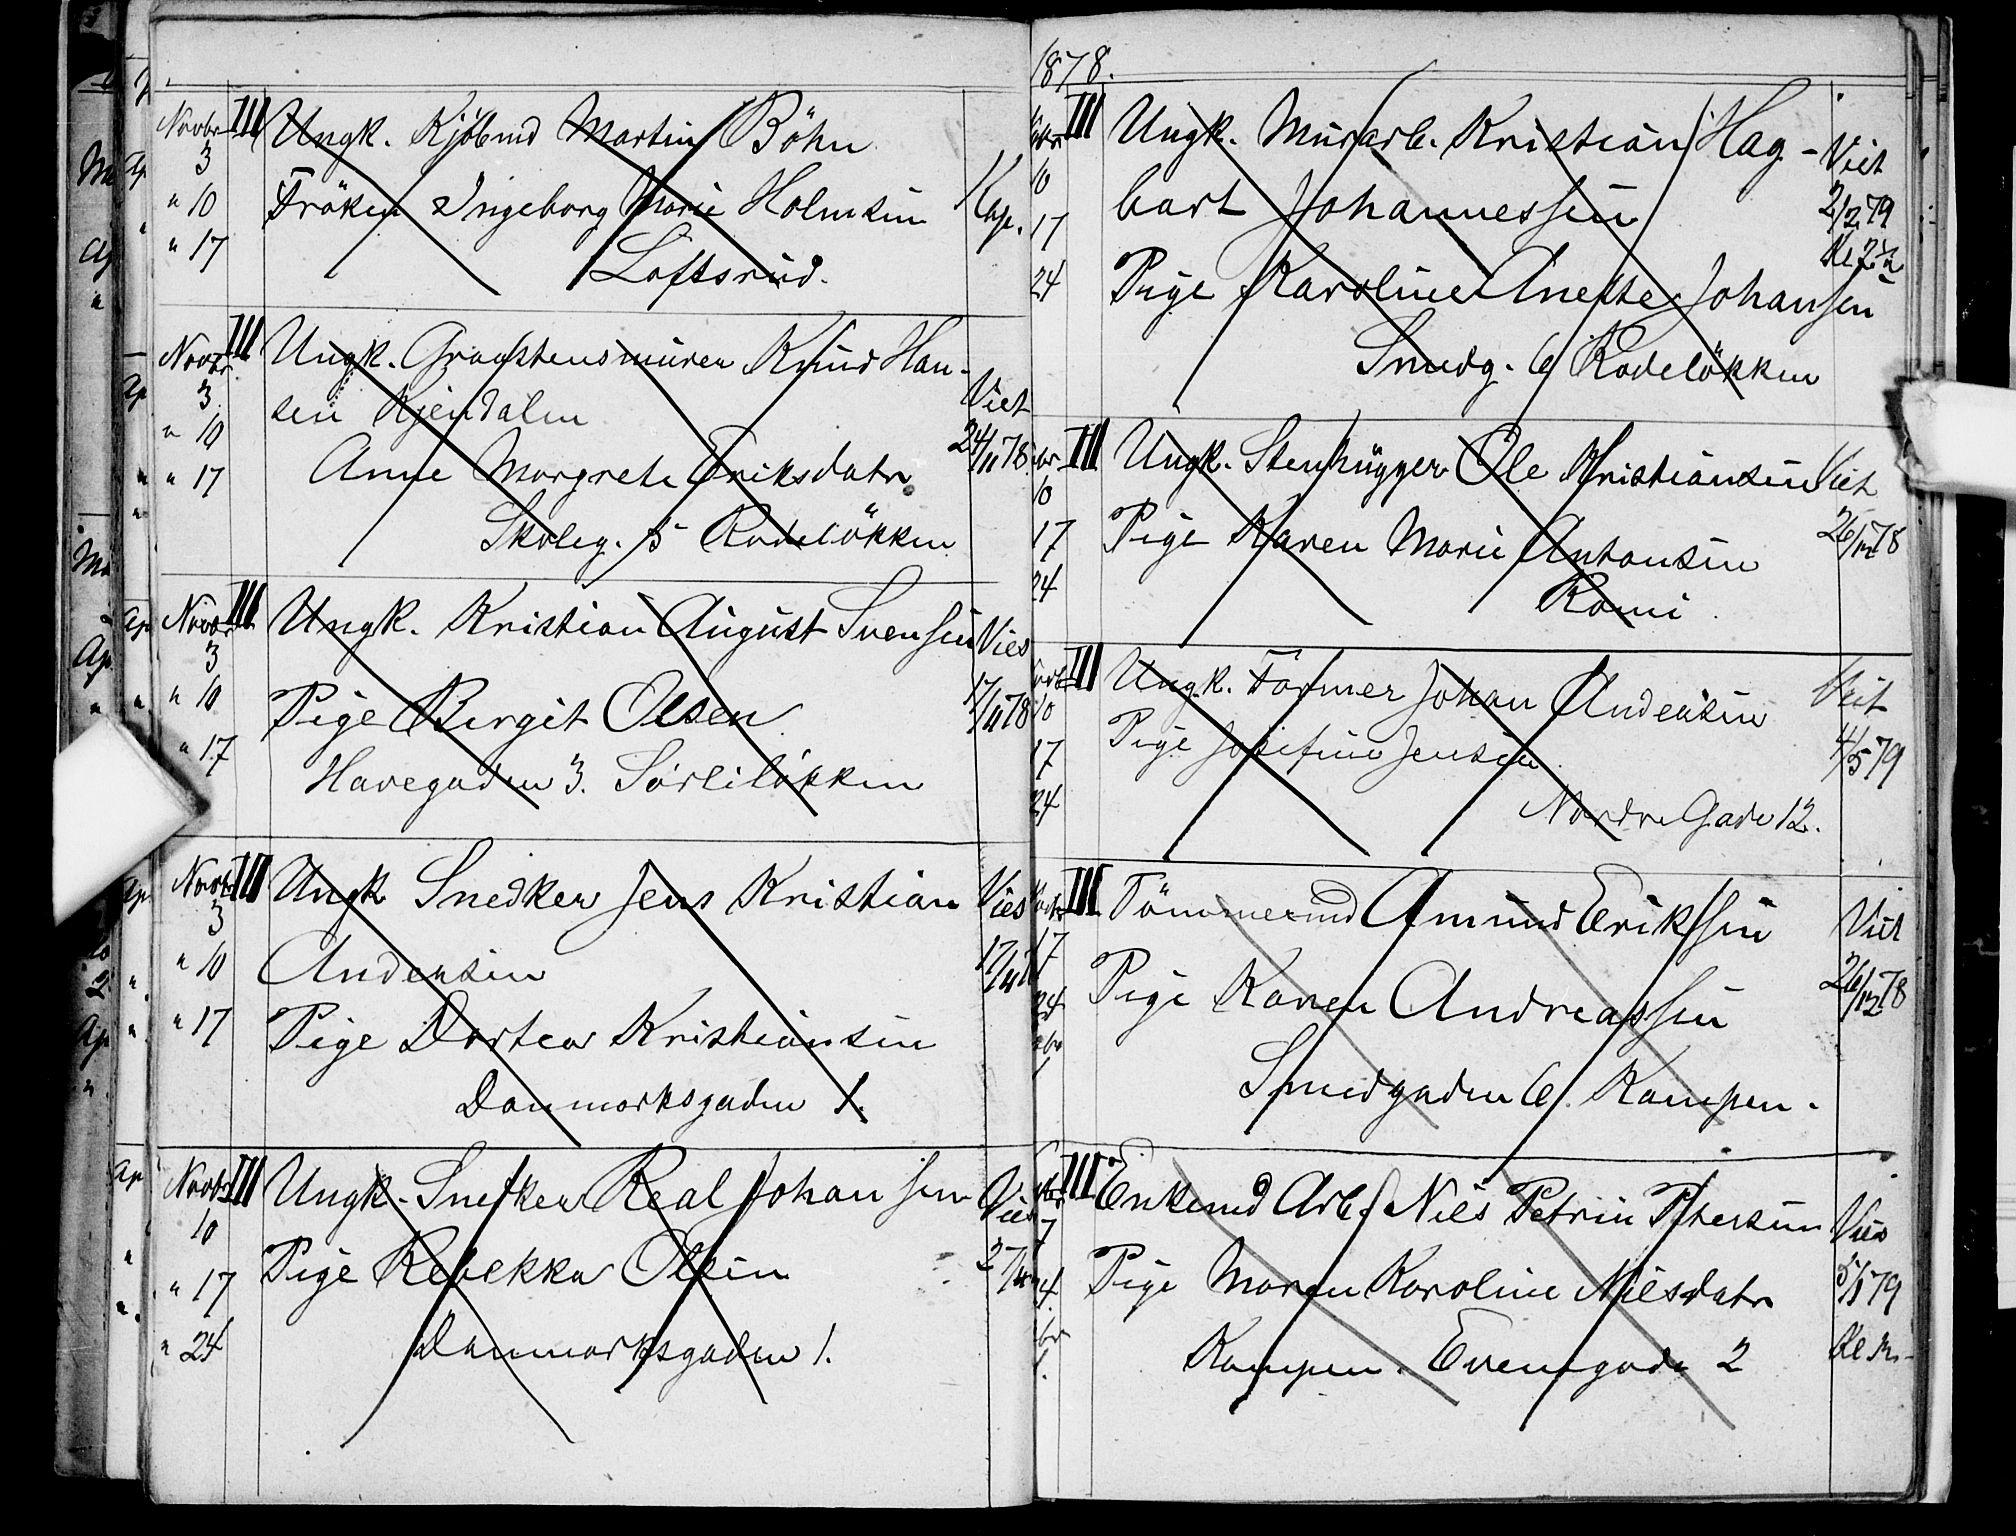 Novbr III Ungk. Kjöbmd Martin Böhn
3
" 10 Fröken Ingeborg Marie Holmsen Kap.
" 17 Loftsrud.
Novbr III Ungk. Graastensmurer Knud Han-
3 sen Kjendalen Viet
" 10 Anne Margrete Eriksdatr 24/11 78
" 17 Skoleg. 5 Rodelökken
Novbr III Ungk. Kristian August Svensen Vies
3
" 10 Pige Birgit Olsen 17/11 78
" 17 Havegaden 3. Sörliløkken
Novbr III Ungk Snedker Jens Kristian Vies
3
" 10 Andersen 17/11
" 17 Pige Dortea Kristiansen
Danmarksgaden 1.
Novbr III Ungk. Snedker Real Johansen
10
" 17 Pige Rebekka Olsen
" 24 Danmarksgaden 1.
1878.
III Ungk. Murarb. Kristian Hag- Viet
10 bart Johannessen 2/2 79
17
24 Pige Karoline Anette Johansen
Smedg. 6 Rodelökken
III Ungk. Stenhugger Ole Kristiansen Viet
10
17 Pige Karen Marie Antonsen 26/12 78
24
III Ungk. Former Johan Andersen Viet
10
17 Pige Josefine Jensen 4/5 79
24 Nordre Gade 12.
III Tömmermd Amund Eriksen Viet
17
24 Pige Karen Andreassen 26/12 78
Smedgaden 6. Kampen.
III Enkemd Arb. Nils Petrin Petersen Vies
Pige Maren Karoline Nilsdatr 5/1 79
Kampen. 2